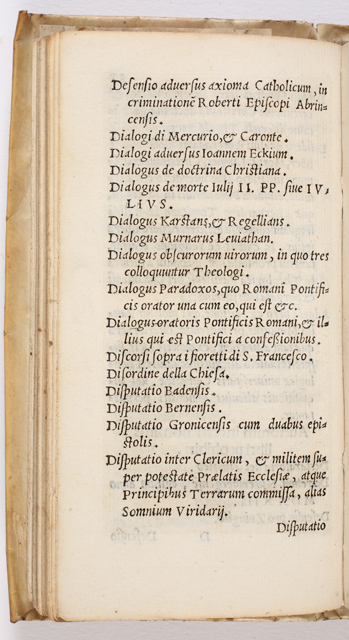 Defensio aduersus axioma Catholicum, in
criminationē Roberti Episcopi Abrin=
censis.
Dialogi di Mercurio, & Caronte.
Dialogi aduersus Ioannem Eckium.
Dialogus de doctrina Christiana.
Dialogus de morte Iulij II. PP. siue IV=
LIVS.
Dialogus Karstans, & Regellians.
Dialogus Murnarus Leuiathan.
Dialogus obscurorum uirorum, in quo tres
colloquuntur Theologi.
Dialogus Paradoxos, quo Romani Pontifi=
cis orator una cum eo, qui est &c.
Dialogus oratoris Pontificis Romani, & il=
lius qui est Pontifici a confeßionibus.
Discorsi sopra i fioretti di S. Francesco.
Disordine della Chiesa.
Disputatio Badensis.
Disputatio Bernensis.
Disputatio Gronicensis cum duabus epi=
stolis.
Disputatio inter Clericum, & militem su=
per potestate Prælatis Ecclesiæ, atque
Principibus Terrarum commissa, alias
Somnium Viridarij.
Disputatio